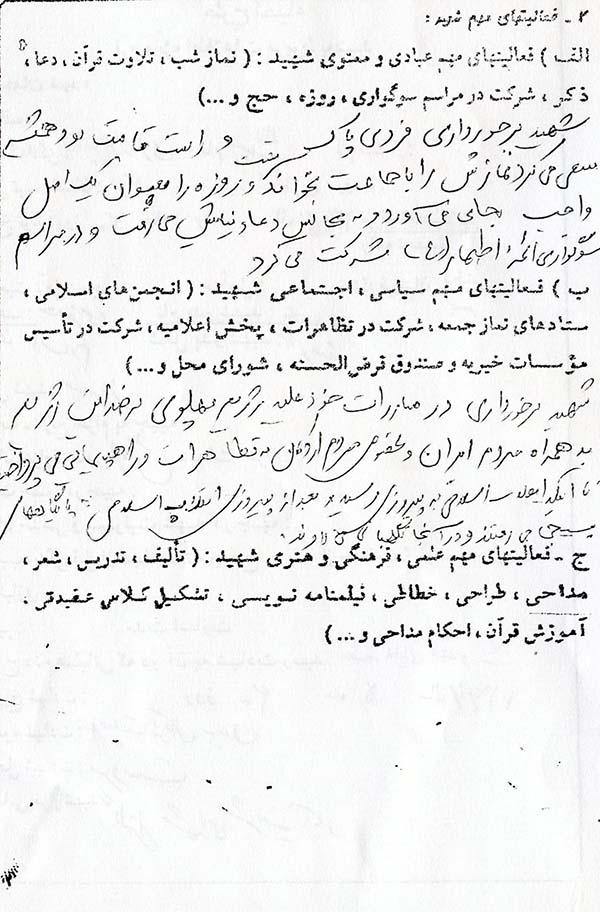 ۲ - فعالیتهای مهم شهید :
الف ) فعالیتهای مهم عبادی و معنوی شهید : ( نماز شب ، تلاوت قرآن ، دعا ،
ذکر ، شرکت در مراسم سوگواری ، روزه ، حج و ... )
شهید برخورداری فردی پاک سرشت و راست قامت بود همیشه
سعی می کرد نمازش را با جماعت بخواند و روزه را بعنوان یک اصل
واجب بجای می آورد و به مجالس دعا و نیایش می رفت و در مراسم
سوگواری ائمه اطهار (ع) شرکت می کرد
ب ) فعالیتهای مهم سیاسی ، اجتماعی شهید : ( انجمن های اسلامی ،
ستادهای نماز جمعه ، شرکت در تظاهرات ، پخش اعلامیه ، شرکت در تأسیس
مؤسسات خیریه و صندوق قرض الحسنه ، شورای محل و ... )
شهید برخورداری در مبارزات خود علیه رژیم پهلوی بر ضد این رژیم
به همراه مردم ایران و مردم به تظاهرات و راهپیمایی می پرداخت
تا اینکه انقلاب اسلامی به پیروزی رسید و بعد از پیروزی انقلاب اسلامی به پایگاههای
بسیجی می رفتند و در آنجا
ج - فعالیتهای مهم علمی ، فرهنگی و هنری شهید : ( تألیف ، تدریس ، شعر ،
مداحی ، طراحی ، خطاطی ، فیلمنامه نویسی ، تشکیل کلاس عقیدتی .
آموزش قرآن ، احکام مداحی و ... )